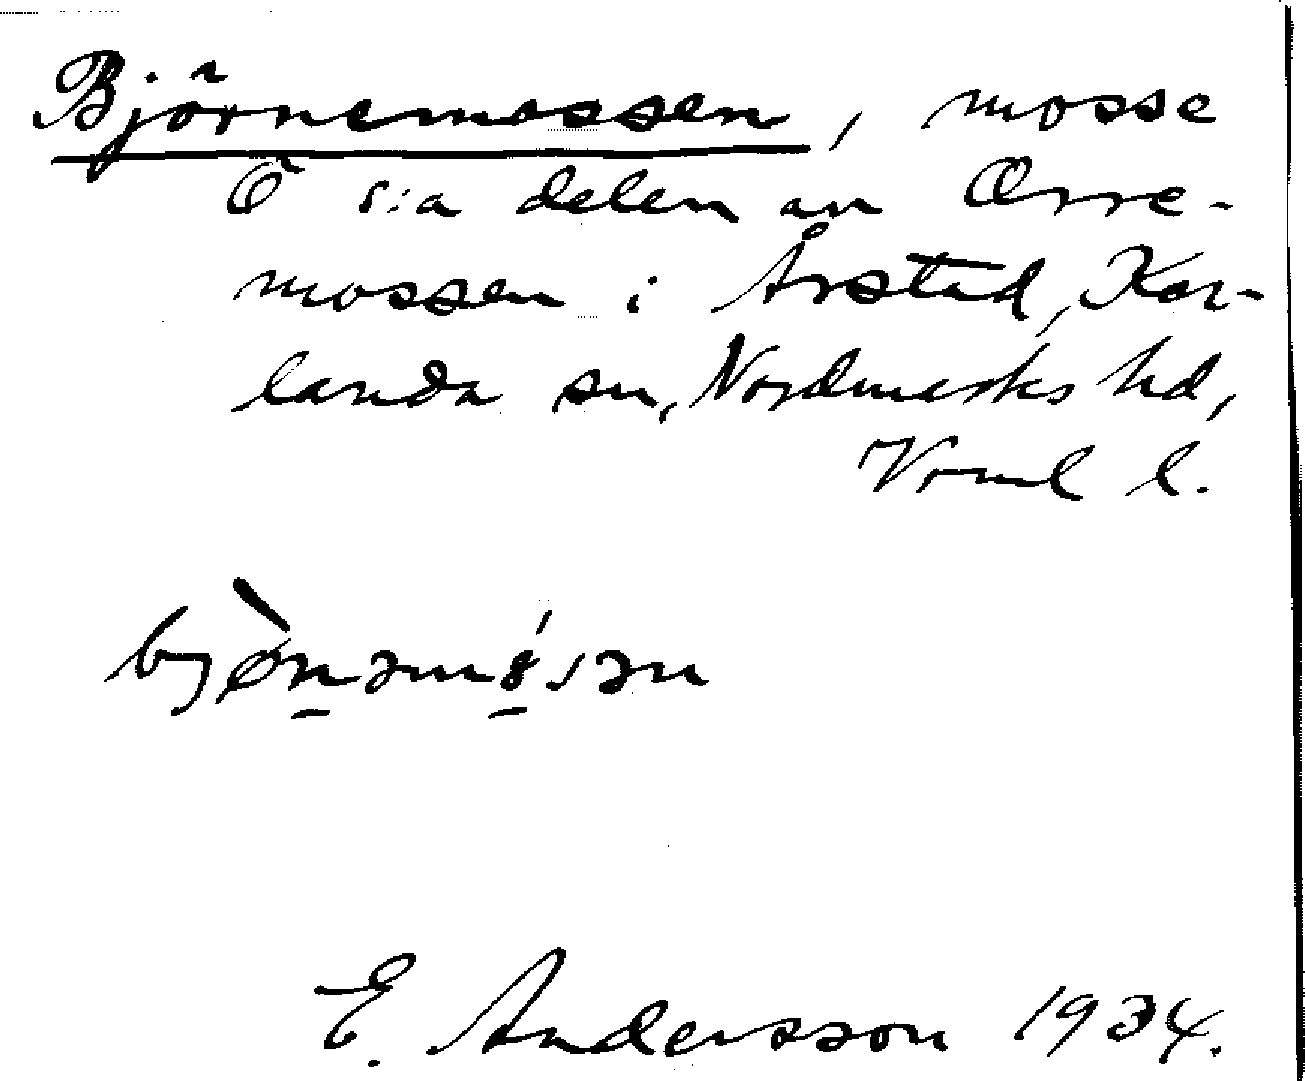 Björnemossen, mosse
Ö s:a delen av Orre-
mossen i Årstad, Kar-
landa sn, Nordmarks hd,
Vrml l.
bjø̀nəmósən
E. Andersson 1934.